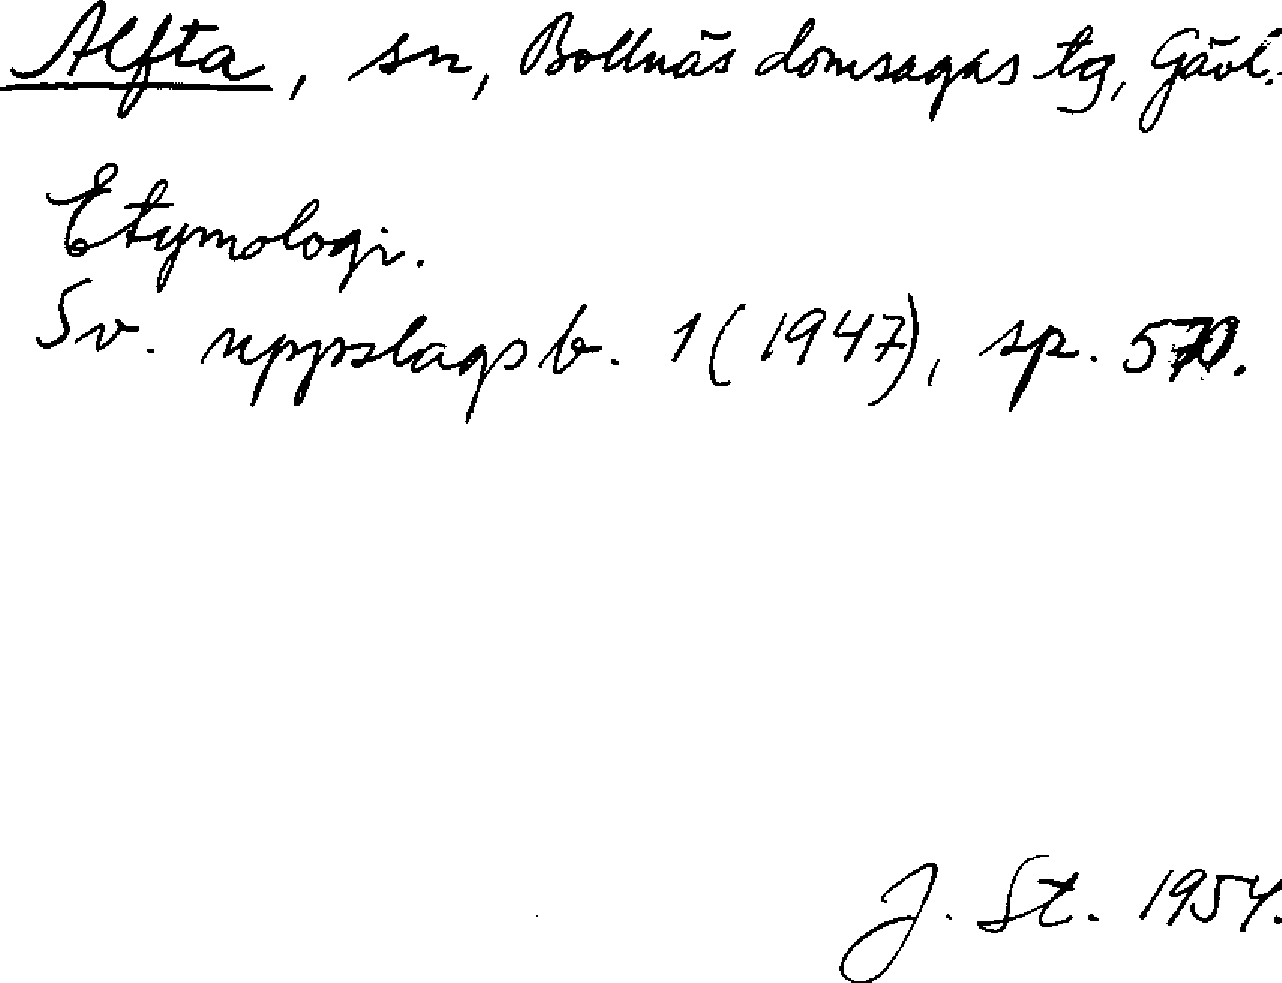 Alfta, sn, Bollnäs domsagas tg, Gävl.
Etymologi.
Sv. uppslagsb. 1 (1947), sp. 570.
J. St. 1954.